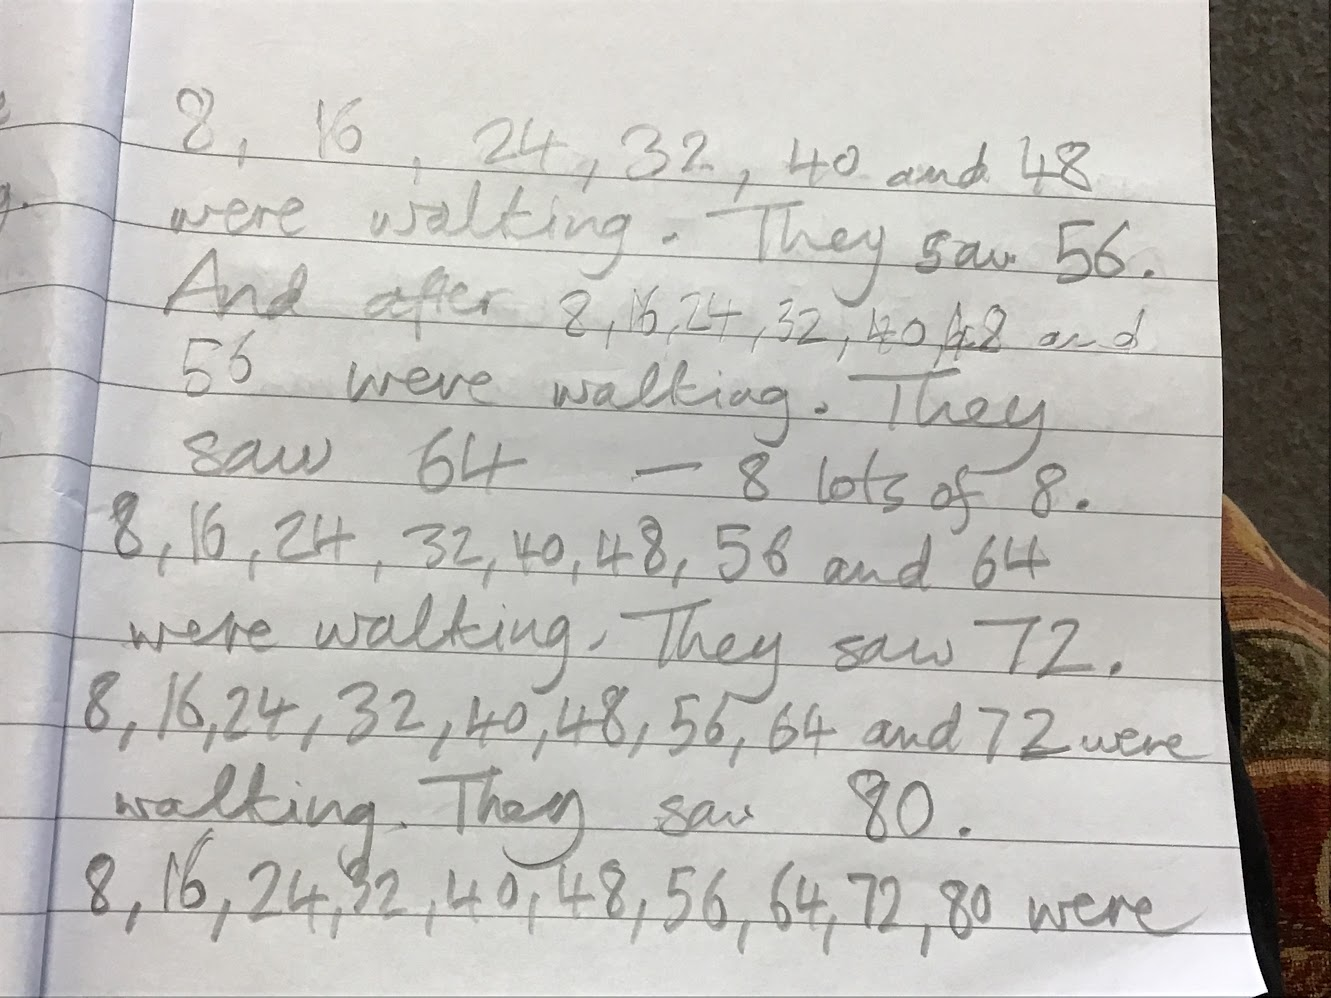 8, 16, 24, 32, 40 and 48
were walking. They saw 56.
And after 8, 16, 24, 32, 40, 48 and
56 were walking. They
saw 64 — 8 lots of 8.
8, 16, 24, 32, 40, 48, 56 and 64
were walking. They saw 72.
8, 16, 24, 32, 40, 48, 56, 64 and 72 were
walking. They saw 80.
8, 16, 24, 32, 40, 48, 56, 64, 72, 80 were